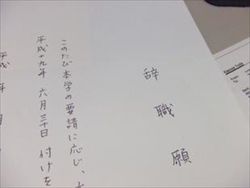 辞職願
このたび本学の要請に応じ、
平成十九年六月三十日付けを
平成